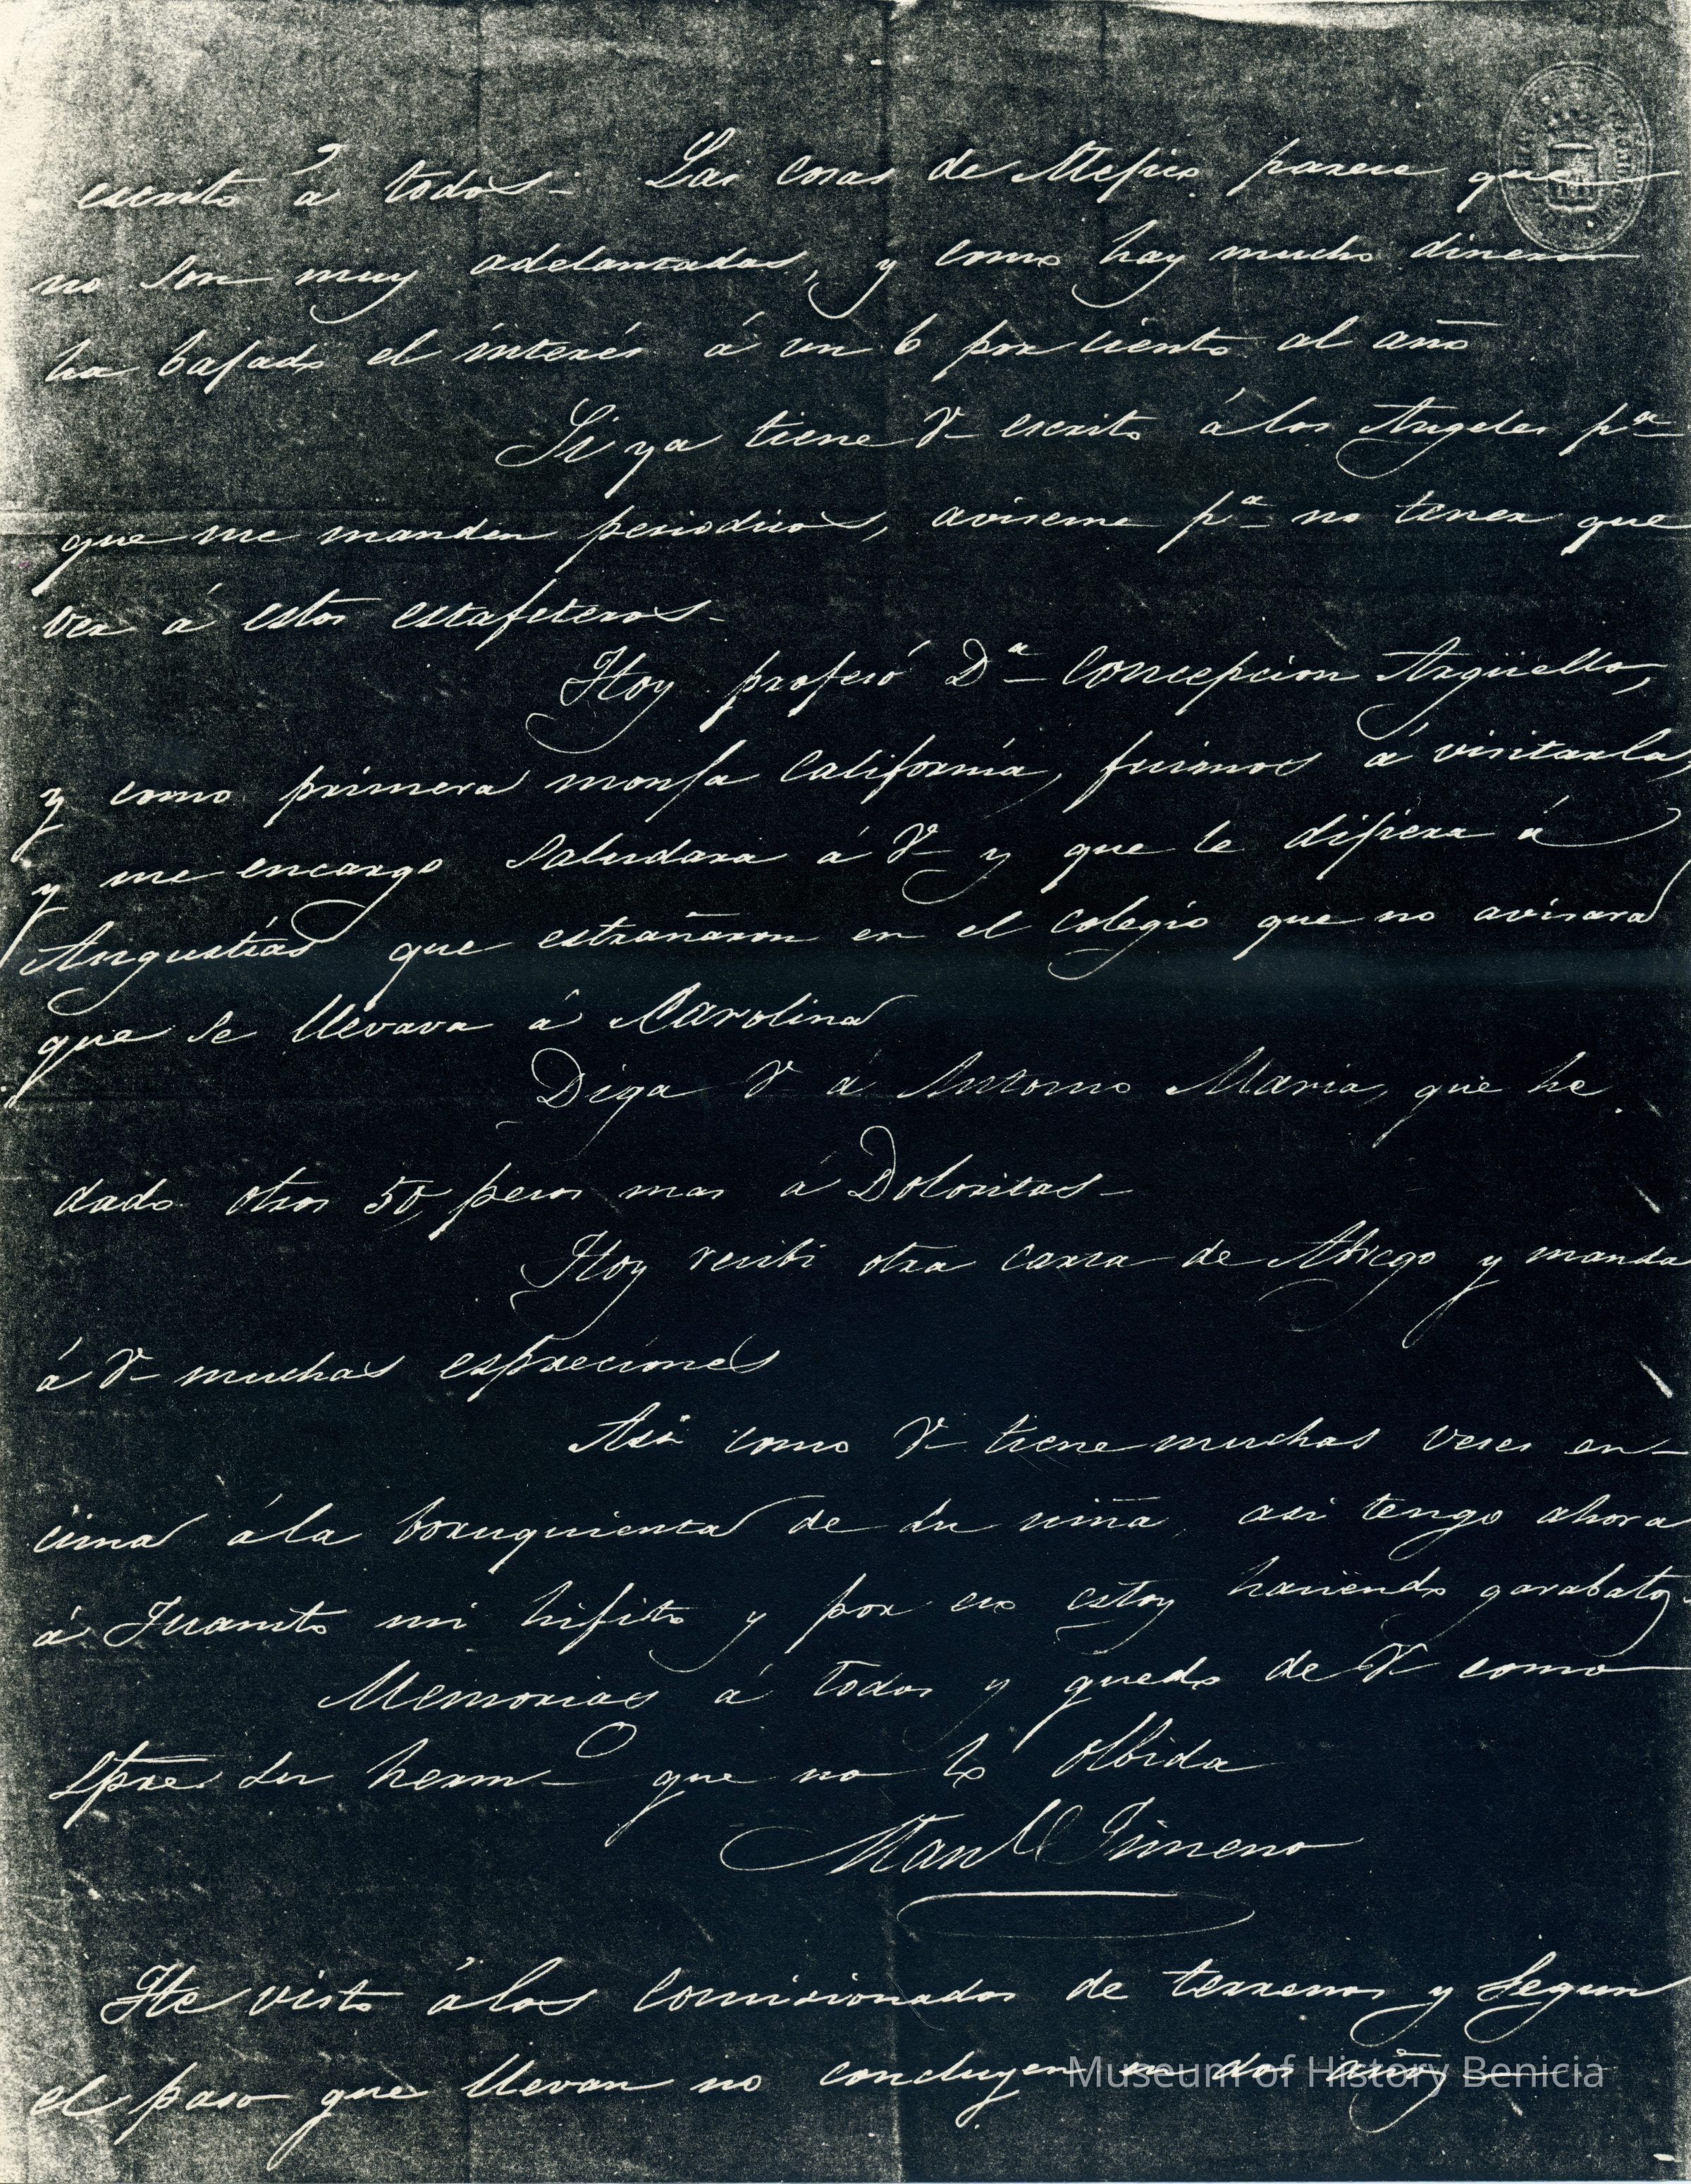 escrito á todos– Las cosas de Mejico parece que
no son muy adelantadas, y como hay mucho dinero
ha bajado el interés á un 6 por ciento al año
Si ya tiene V– escrito á los Angeles pª
que me manden periodicos, aviseme pª no tener que
ver á estos estafeteros–
Hoy profesó Dª Concepcion Argüello,
y como primera monja California, fuimos á visitarla,
y me encargo saludara á V– y que le dijiera á
Angustias que estrañaron en el colegio que no avisara
que se llevava á Carolina
Diga V á Antonio Maria, que he
dado otros 50, pesos mas á Doloritas–
Hoy recibi otra carta de Abrego y manda
á V– muchas espreciones
Asi como V– tiene muchas veses en–
cima á la boruquienta de su niña, asi tengo ahora
á Juanito mi hijito y por eso estoy haciendo garabatos.
Memorias á todos y quedo de V– como
Spre su herm– que no lo olbida
Manl Jimeno
He visto á los Comisionados de terrenos y segun
el paso que llevan no concluyen en dos años
Museum of History Benicia